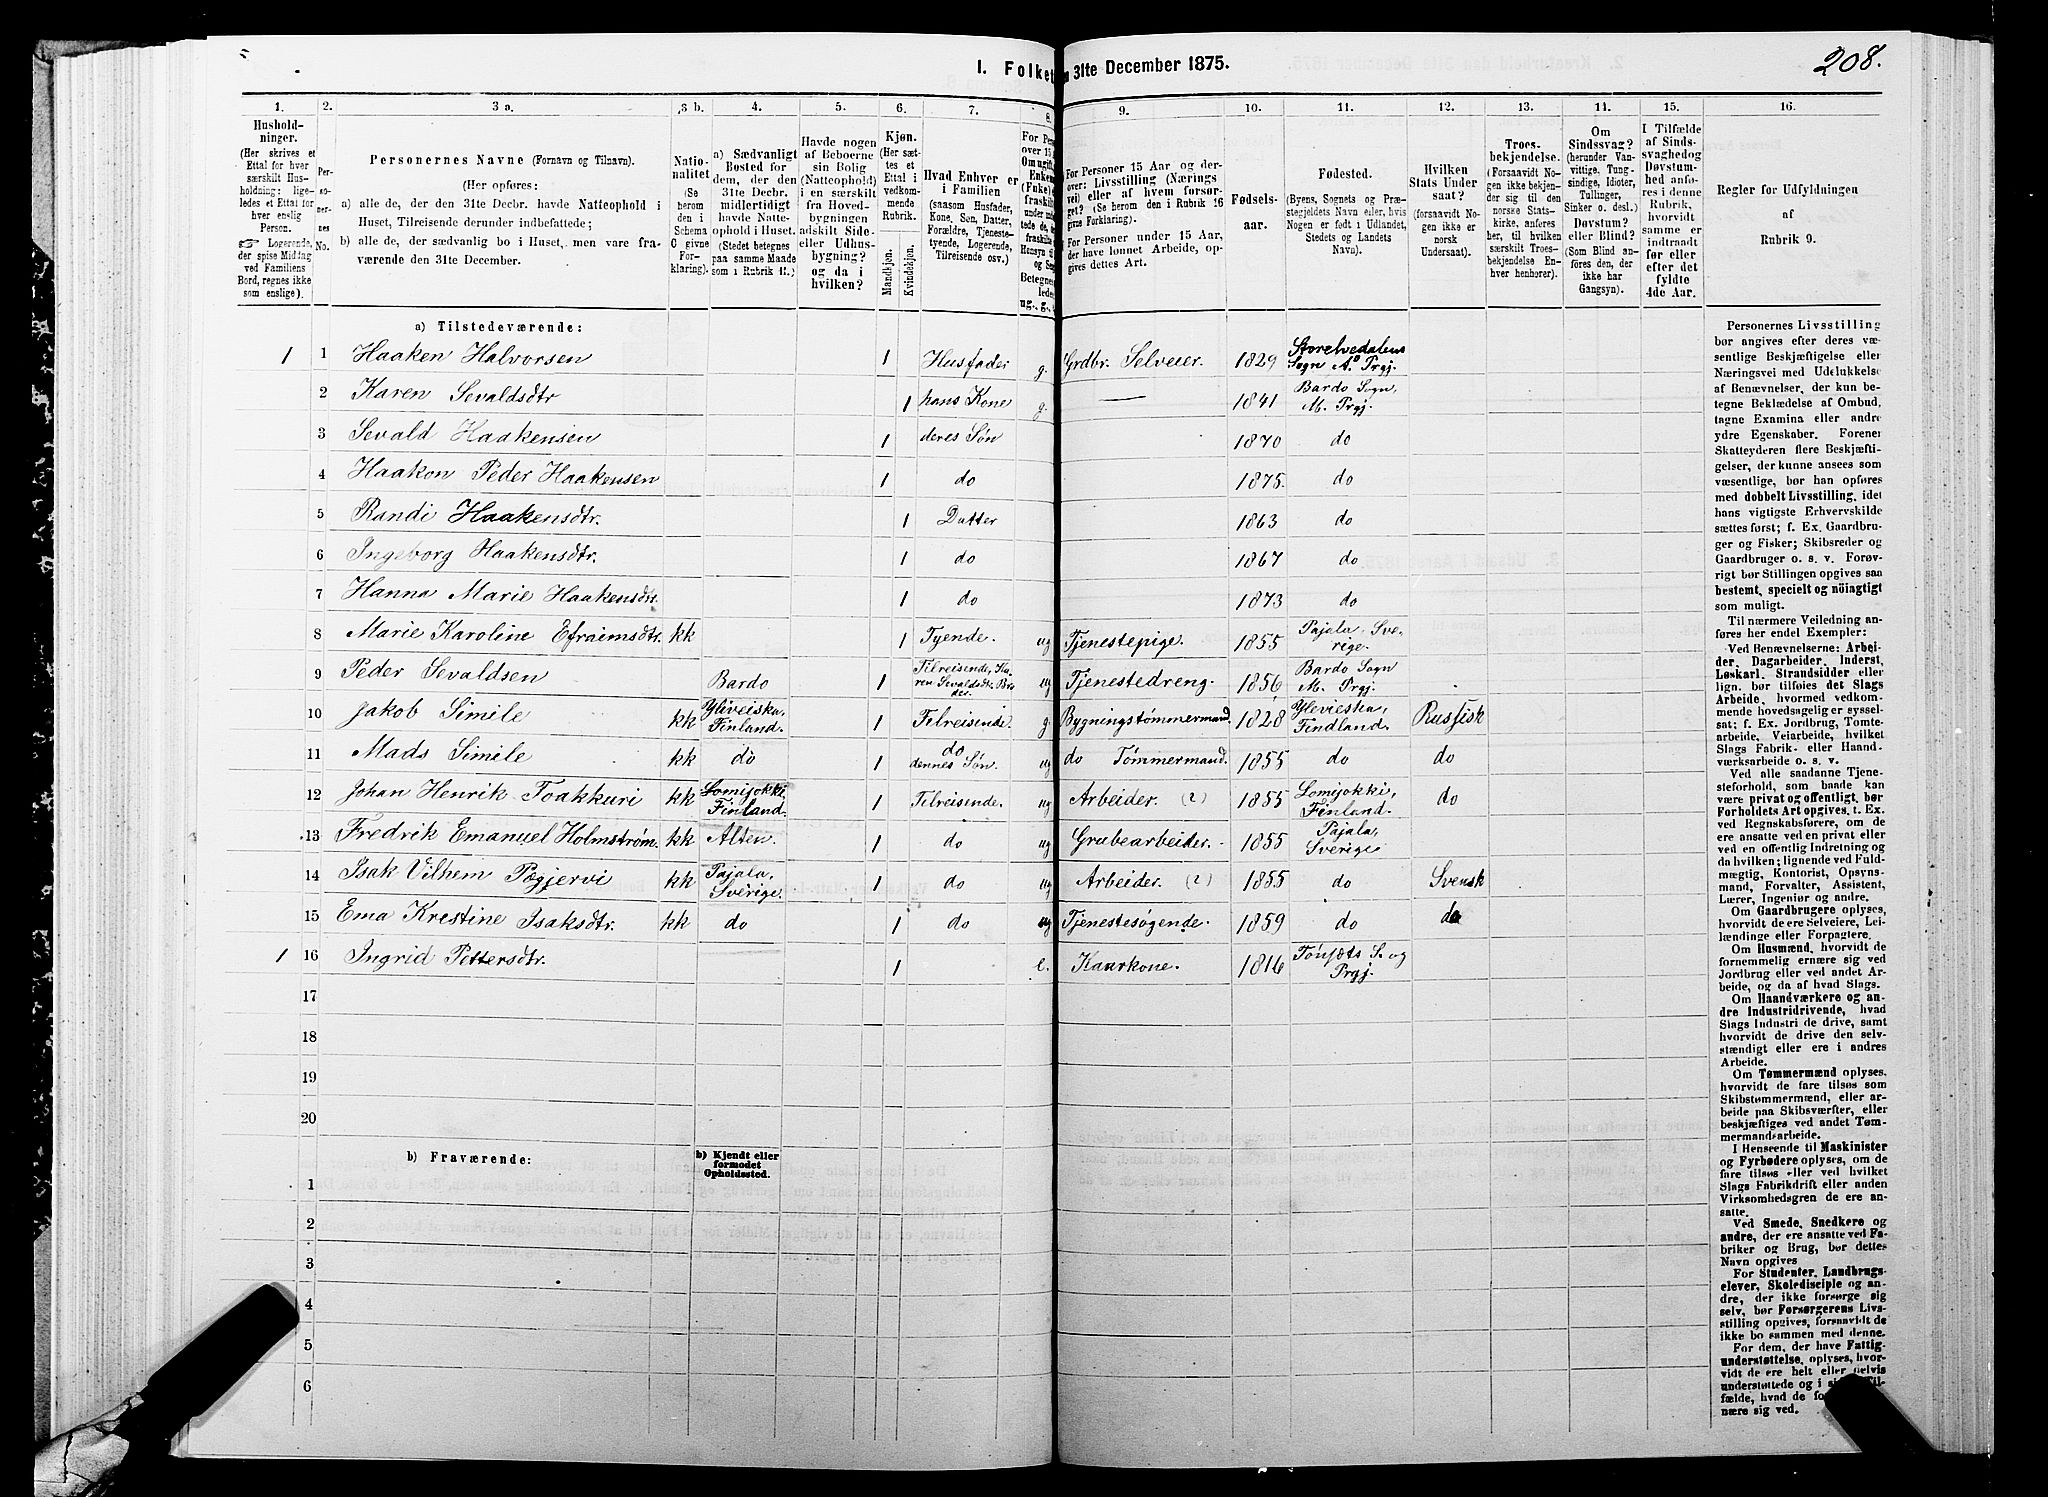 208.
I. Folket
31te December 1875.
1. 2. 3 a. 3 b. 4. 5. 6. 7. 8. 9. 10. 11. 12. 13. 14. 15. 16.
Hushold-
ninger.
(Her skrives et
Ettal for hver
særskilt Hus-
holdning; lige-
ledes et Ettal for
hver enslig
Person.
☞ Logerende,
der spise Middag
ved Familiens
Bord, regnes ikke
som enslige).
Per-
so-
ner-
nes
No.
Personernes Navne (Fornavn og Tilnavn).
(Her opføres:
a) alle de, der den 31te Decbr. havde Natteophold i
Huset, Tilreisende derunder indbefattede;
b) alle de, der sædvanlig bo i Huset, men vare fra-
værende den 31te December.
Natio-
nalitet
(Se
herom
den i
Schema
C givne
Forkla-
ring).
a) Sædvanligt
Bosted for
dem, der den
31te Decbr.
midlertidigt
havde Natte-
ophold i Huset.
(Stedet betegnes
paa samme Maade
som i Rubrik 11.)
Havde nogen
af Beboerne
sin Bolig
(Natteophold)
i en særskilt
fra Hoved-
bygningen
adskilt Side-
eller Udhus-
bygning?
og da i
hvilken?
Kjøn.
(Her sæt-
tes et
Ettal i
vedkom-
mende
Rubrik.
Mandkjøn.
Kvindekjøn.
Hvad Enhver er
i Familien
(saasom Husfader,
Kone, Søn, Datter,
Forældre, Tjeneste-
tyende, Logerende,
Tilreisende osv.)
For Personer 15 Aar og der-
over: Livsstilling (Nærings
vei) eller af hvem forsør-
get? (Se herom den i Rubrik 16
givne Forklaring).
For Personer under 15 Aar,
der have lønnet Arbeide, op-
gives dettes Art.
Fødsels-
aar.
Fødested.
(Byens, Sognets og Præ-
stegjeldets Navn eller, hvis
Nogen er født i Udlandet,
Stedets og Landets
Navn).
Hvilken
Stats Under
saat?
(forsaavidt No-
gen ikke er
norsk
Undersaat).
Troes-
bekjendelse.
(Forsaavidt No-
gen ikke bekjen-
der sig til den
norske Stats-
kirke, anføres
her, til hvilken
særskilt Troes-
bekjendelse En-
hver henhører).
Om
Sindssvag?
(herunder Van-
vittige, Tung-
sindige, Idioter,
Tullinger,
Sinker o. desl.)
Døvstum?
eller Blind?
(Som Blind an-
føres den, der
ikke har
Gangsyn).
I Tilfælde
af Sinds-
svaghed og
Døvstum-
hed anfø-
res i denne
Rubrik,
hvorvidt
samme er
indtraadt
før eller
efter det
fyldte
4de Aar.
Regler for Udfyldningen
af
Rubrik 9.
a) Tilstedeværende:
1 1 Haaken Halvorsen 1 Husfader g. Grdbr. Selveier. 1829 Storelvedalens Sogn A. Prgj.
2 Karen Sevaldsdtr 1 hans Kone g. — 1841 Bardo Sogn, M. Prgj.
3 Sevald Haakensen 1 deres Søn 1870 do
4 Haakon Peder Haakensen 1 do 1875. do
5 Randi Haakensdtr. 1 Datter 1863 do
6 Ingeborg Haakensdtr. 1 do 1867 do
7 Hanna Marie Haakensdtr. 1 do 1873 do
8 Marie Karoline Efraimsdtr. kk 1 Tyende. ug Tjenestepige. 1855 Pajala, Sve- rige.
9 Peder Sevaldsen Bardo 1 Tilreisende, Ka- ren Sevaldsdtr. Bro- der. ug Tjenestedreng. 1856 Bardo Sogn M. Prgj.
10 Jakob Simile kk Yliveiska, Finland. 1 Tilreisende. g. Bygningstømmermand. 1828 Ylevieska, Findland. Russisk
11 Mads Simile kk do 1 do dennes Søn. ug do Tømmermand. 1855 do do
12 Johan Henrik Toakkuri kk Lomijokki, Finland. 1 Tilreisende. ug Arbeider. (2) 1855 Lomijokki, Finland. do
13 Fredrik Emanuel Holmstrøm. kk Alten. 1 do ug Grubearbeider. 1855 Pajala, Sverige
14 Isak Vilhem Pægjervi kk Pajala, Sverige. 1 do ug Arbeider. (2) 1855 do Svensk
15 Ema Krestine Isaksdtr. kk do 1 do ug Tjenestesøgende. 1859 do do
1 16 Ingrid Pettersdtr. 1 e. Kaarkone. 1816 Tønsæts S. og Prgj.
17
18
19
20
b) Fraværende:
b) Kjendt eller
formodet
Opholdssted.
1
2
3
4
5
6
Personernes Livsstilling
bor angives efter deres væ-
sentlige Beskjæftigelse eller
Næringsvei med Udelukkelse
af Benævnelser, der kun be-
tegne Beklædelse af Ombud,
tagne Examina eller andre
ydre Egenskaber. Forener
Skatteyderen flere Beskjæfti-
gelser, der kunne ansees som
væsentlige, bør han opføres
med dobbelt Livsstilling, idet
hans vigtigste Erhvervskilde
sættes først; f. Ex. Gaardbru-
ger og Fisker; Skibsreder og
Gaardbruger o. s. v. Forøv-
rigt bør Stillingen opgives saa
bestemt, specielt og nöiagtigt
som muligt.
Til nærmere Veiledning an-
føres her endel Exempler:
Ved Benævnelserne: Arbei-
der, Dagarbeider, Inderst,
Løskarl, Strandsidder eller
lign. bør tilføies det Slags
Arbeide, hvormed vedkom-
mende hovedsagelig er syssel-
sat; f. Ex. Jordbrug, Tomte-
arbeide, Veiarbeide, hvilket
Slags Fabrik- eller Haand-
værksarbeide o. s. v.
Ved alle saadanne Tjene-
steforhold, som baade kan
være privat og offentligt, bør
Forholdets Art opgives, t. Ex.
ved Regnskabsførere, om de
ere ansatte ved en privat eller
ved en offentlig Indretning og
da hvilken; lignende ved Fuld-
mægtig, Kontorist, Opsyns-
mand, Forvalter, Assistent,
Lærer, Ingeniør og andre.
Om Gaardbrugere oplyses,
hvorvidt de ere Selveiere, Lei-
lændinge eller Forpagtere.
Om Husmænd, hvorvidt de
fornemmelig ernære sig ved
Jordbrug eller ved andet Ar-
beide, og da af hvad Slags.
Om Haandværkere og an-
dre Industridrivende, hvad
Slags Industri de drive, samt
hvorvidt de drive den selv-
stændigt eller ere i andres
Arbeide.
Om Tømmermænd oplyses,
hvorvidt de fare tilsøs som
Skibstømmermænd, eller ar-
beide paa Skibsværfter, eller
beskjæftiges ved andet Tøm-
mermandsarbeide.
I Henseende til Maskinister
og Fyrbødere oplyses, om de
fare tilsøs eller ved hvilket
Slags Fabrikdrift eller anden
Virksomhedsgren de ere an-
satte.
Ved Smede, Snedkere og
andre, der ere ansatte ved Fa-
briker og Brug, bør dettes
Navn opgives
For Studenter, Landbrugs-
elever, Skoledisciple og an-
dre, der ikke forsørge sig
selv, bør Forsørgerens Livs-
stilling opgives, forsaavidt de
ikke bo sammen med denne.
For dem, der have Fattig-
understøttelse, oplyses, hvor-
vidt de ere helt eller delvis
understøttede og i
fælde, hvad de
nære sig ved.